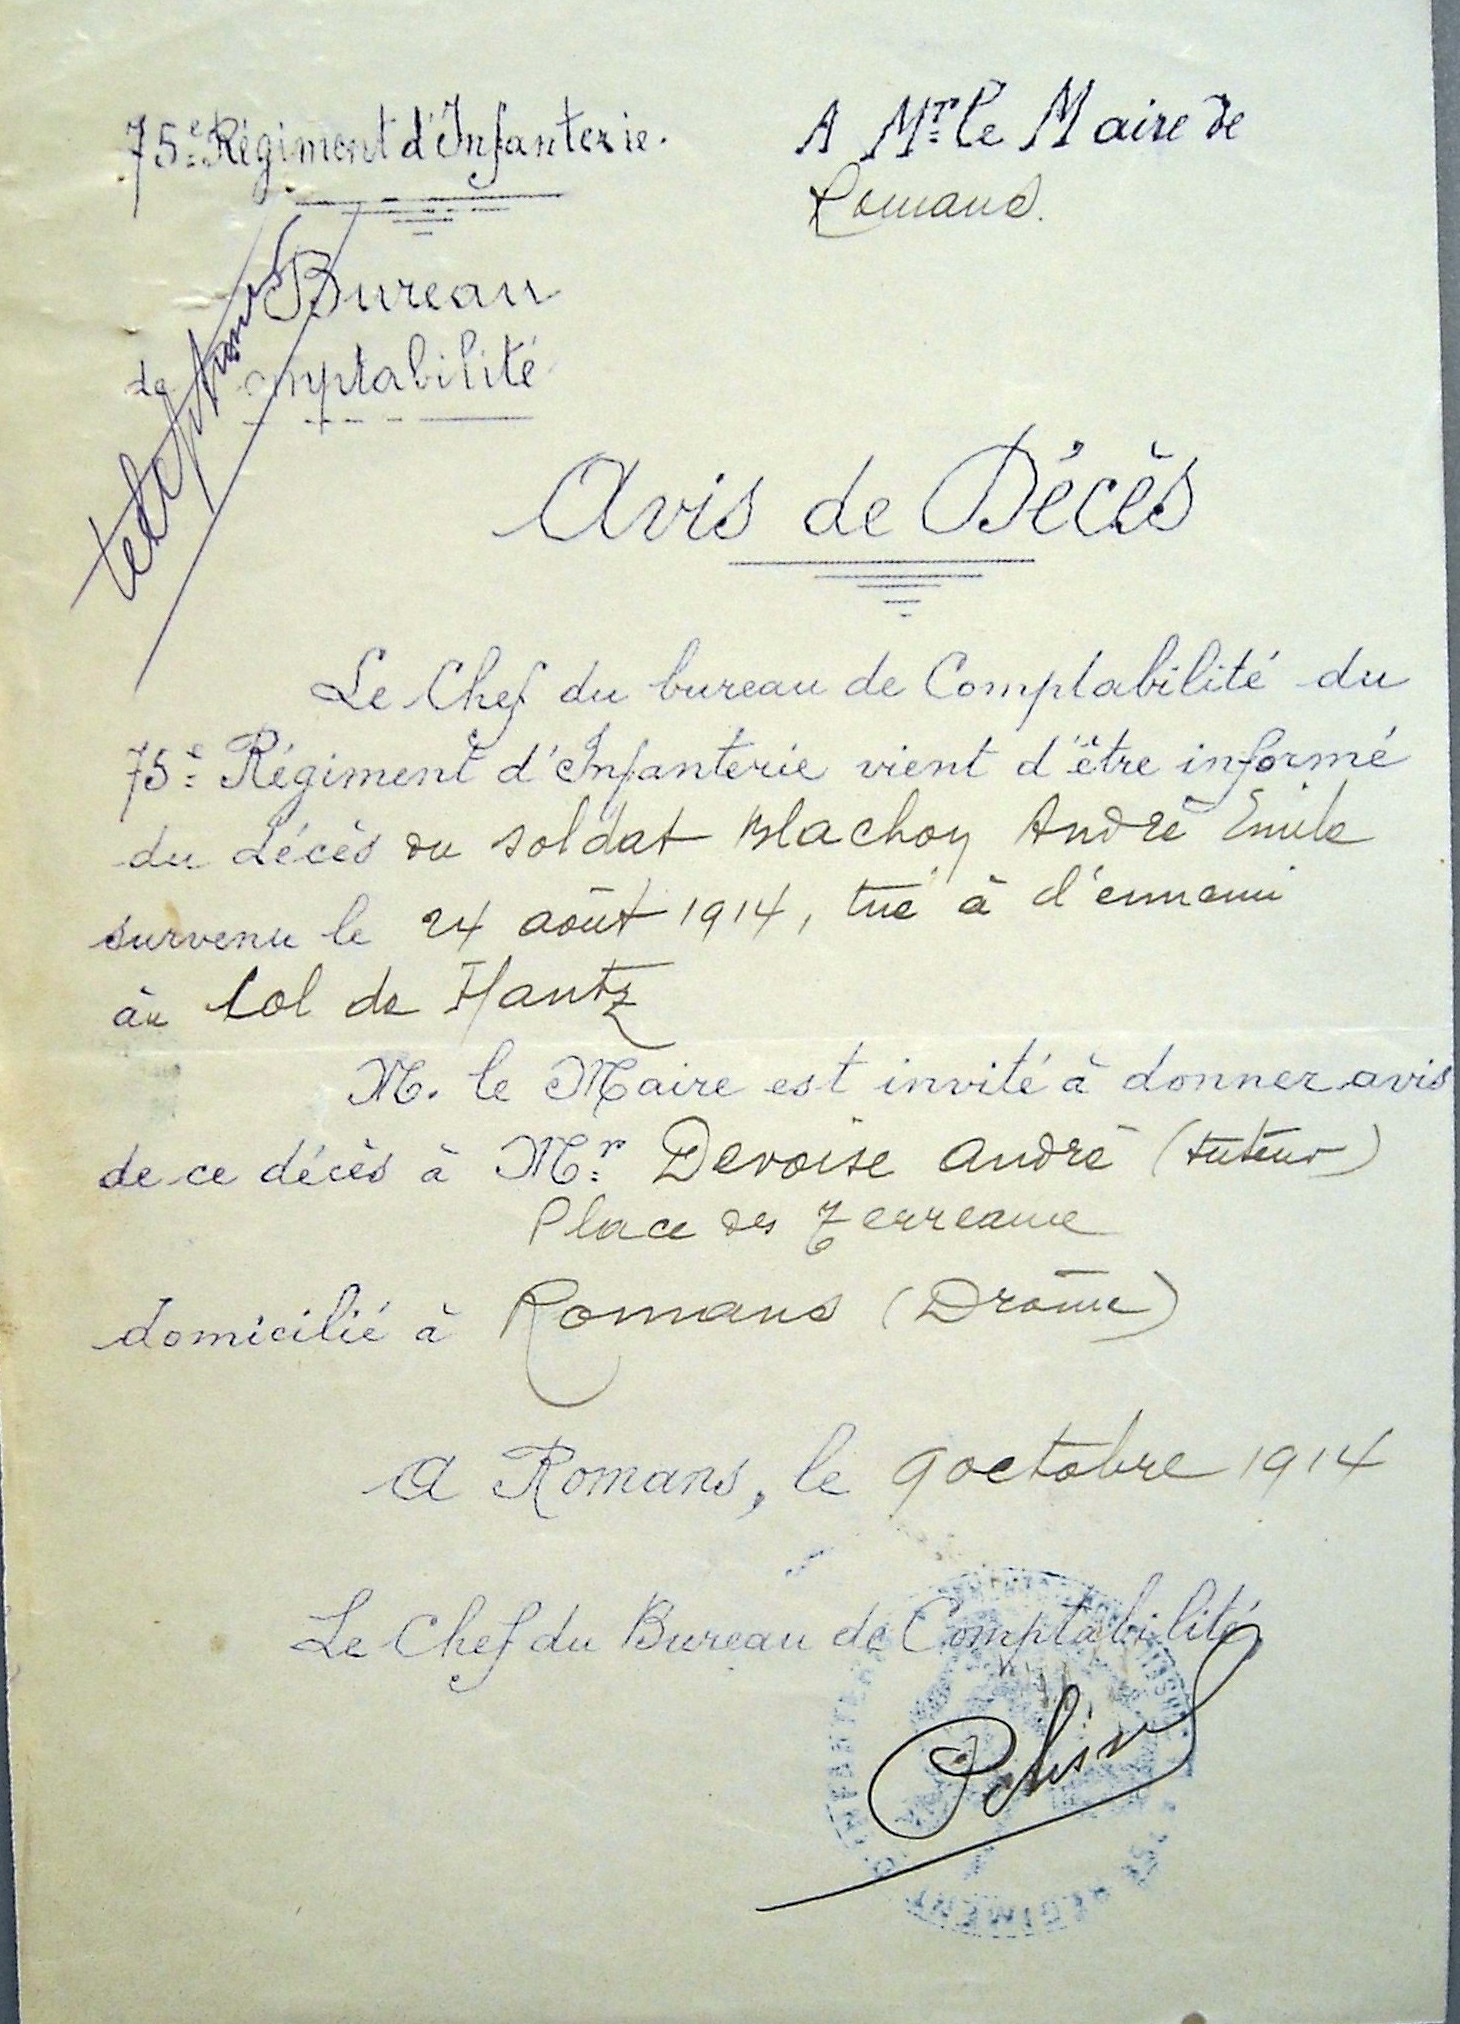 75e Régiment d'Infanterie.
A Mr le Maire de
Romans.
Bureau
de Comptabilité
Avis de Décès
Le Chef du bureau de Comptabilité du
75e Régiment d'Infanterie vient d'être informé
du décès du soldat Blachon André Emile
survenu le 24 août 1914, tué à l'ennemi
au Col de Hantz
M. le Maire est invité à donner avis
de ce décès à Mr Devoise André (tuteur)
Place des Terreaux
domicilié à Romans (Drôme)
A Romans, le 9 octobre 1914
Le Chef du Bureau de Comptabilité